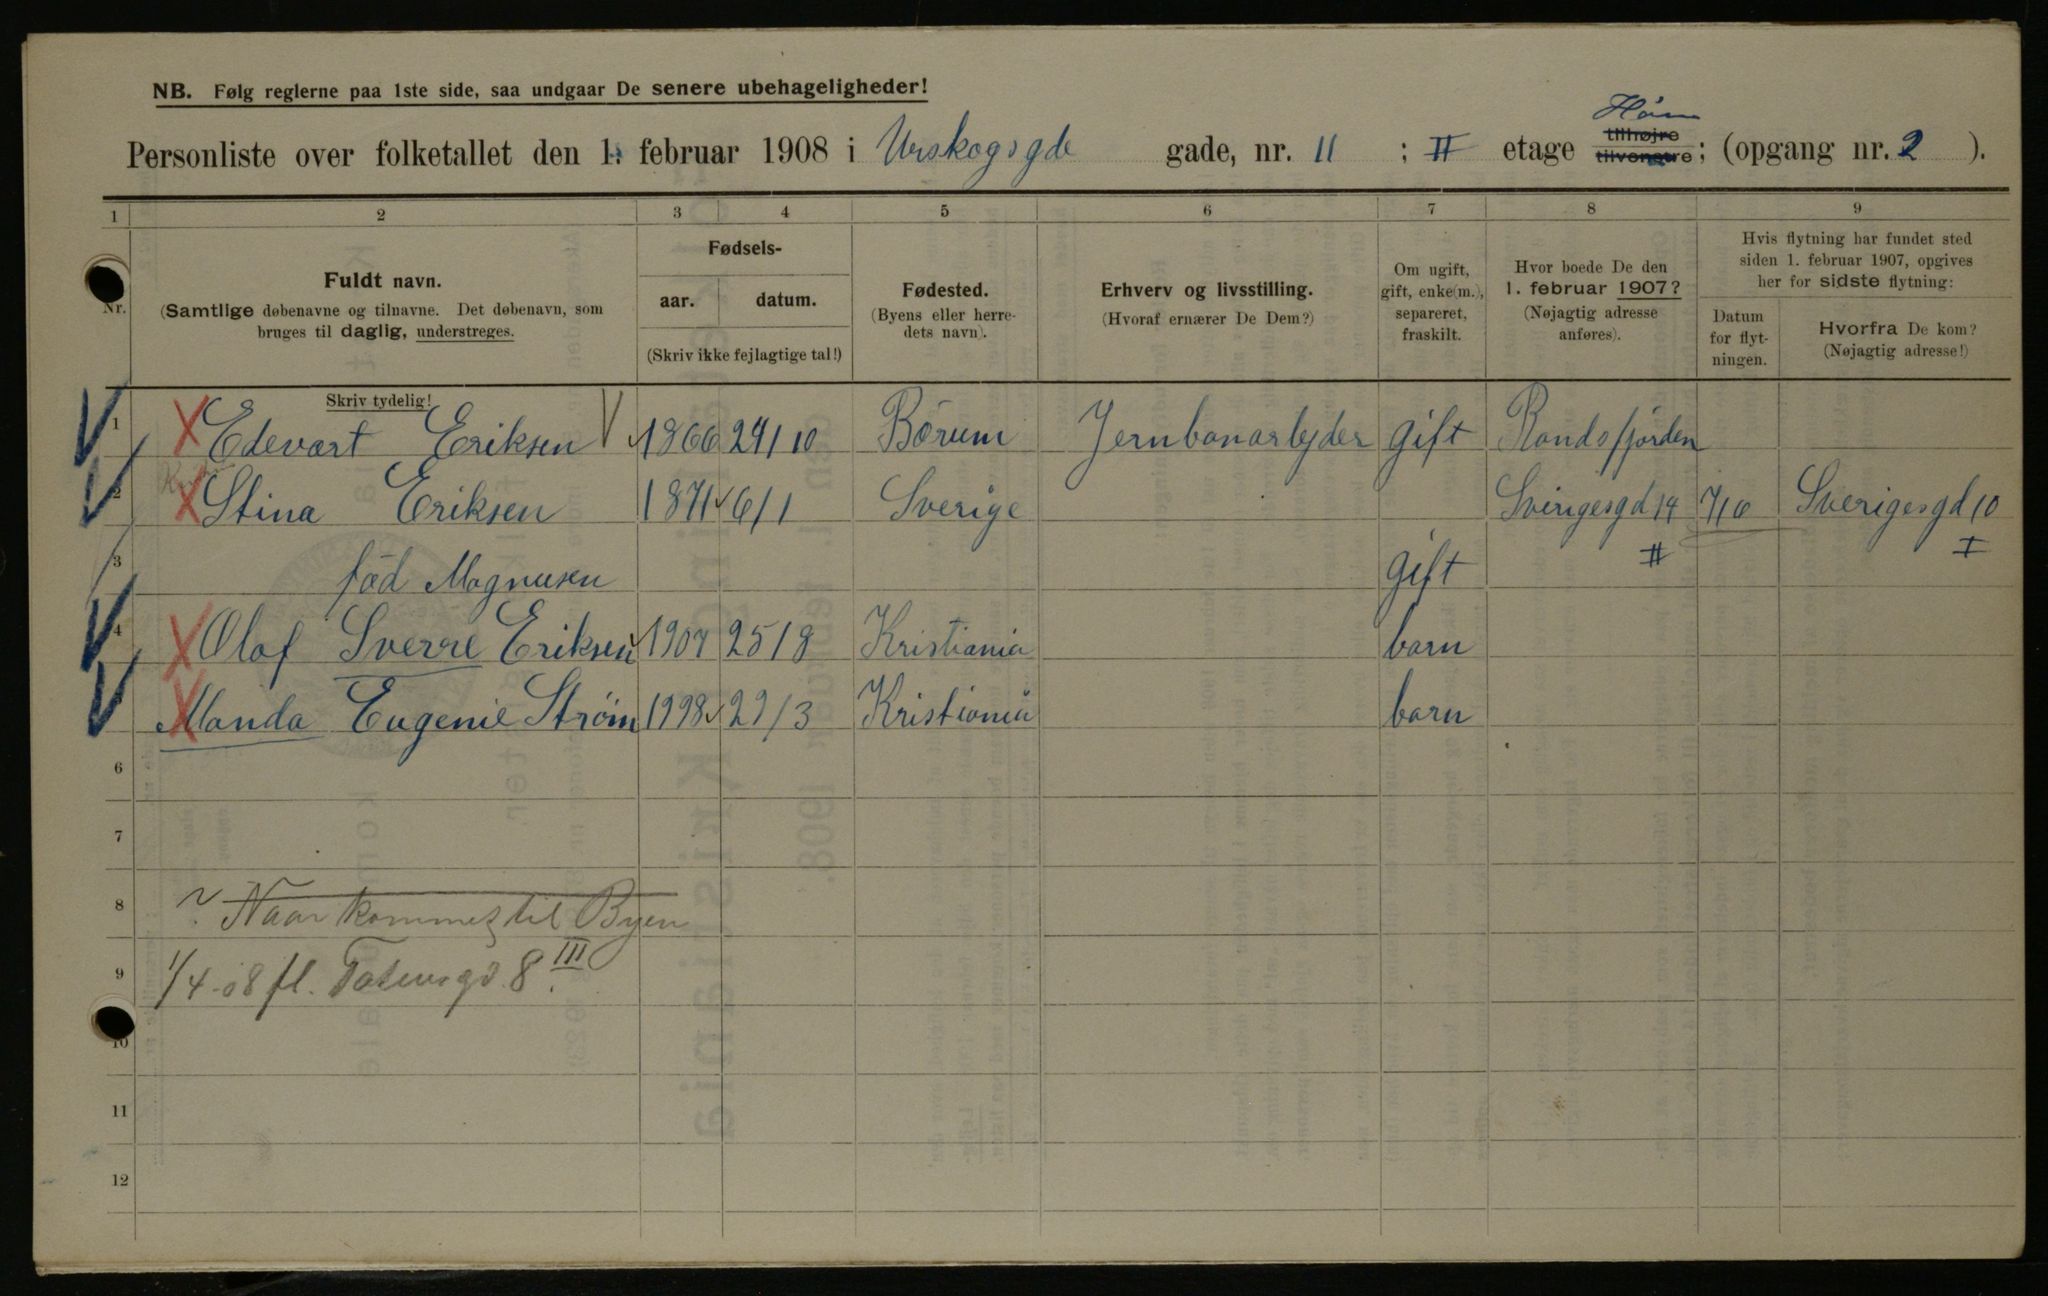 NB. Følg reglerne paa 1ste side, saa undgaar De senere ubehageligheder!
Personliste over folketallet den 1. februar 1908 i Urskogsgde gade, nr. 11 ; II etage tilhøjre tilvenstre; (opgang nr. 2 ).
1 2 3 4 5 6 7 8 9
Nr.
Fuldt navn.
(Samtlige døbenavne og tilnavne. Det døbenavn, som bruges til daglig, understreges.
Fødsels-
aar. datum.
(Skriv ikke fejlagtige tal!)
Fødested.
(Byens eller herredets navn).
Erhverv og livsstilling.
(Hvoraf ernærer De Dem?)
Om ugift, gift, enke(m.), separeret, fraskilt.
Hvor boede De den 1. februar 1907?
(Nøjagtig adresse anføres).
Hvis flytning har fundet sted siden 1. februar 1907, opgives her for sidste flytning:
Datum for flytningen.
Hvorfra De kom?
(Nøjagtig adresse!)
Skriv tydelig!
1 Edevart Eriksen 1866 24/10 Bærum Jernbanarbejder gift Randsfjorden
2 Stina Eriksen 1871 6/1 Sverige Svingesgd 14 7/6 Sverigesgd 10
3 fød Magnusen gift II I
4 Olaf Sverre Eriksen 1907 25/8 Kristiania barn
Manda Eugenie Strøm 1998 29/3 Kristiania barn
6
7
8 ? Naar kommet til Byen
9 1/4-08 fl. Totensgd. 8 III
10
11
12